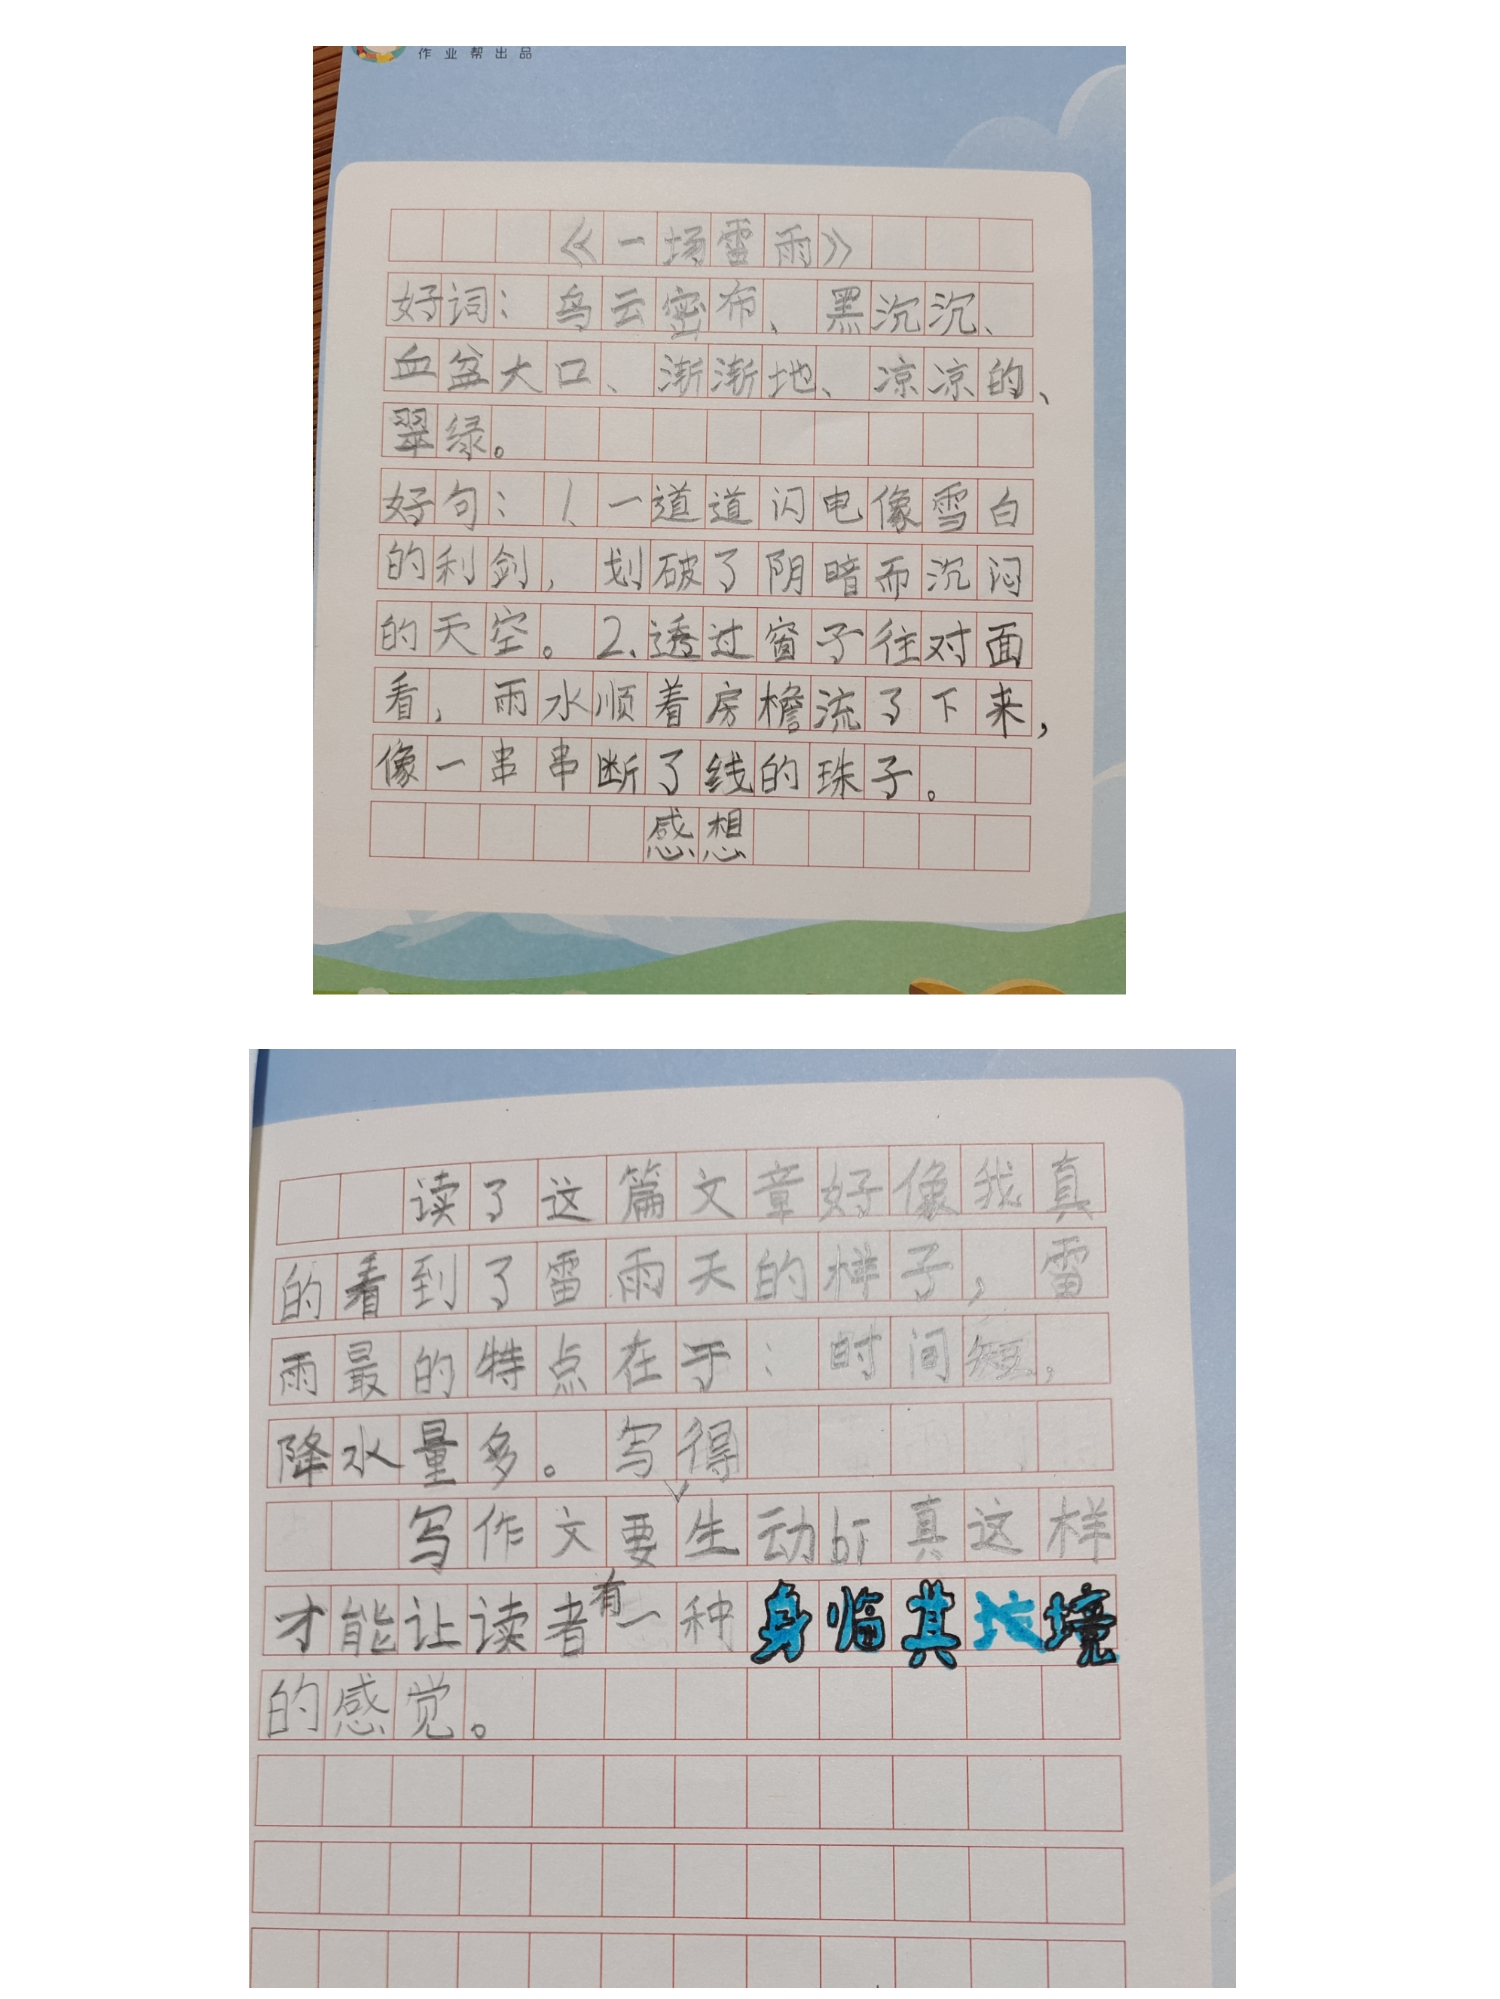 作业帮出品
《一场雷雨》
好词：乌云密布、黑沉沉、
血盆大口、渐渐地、凉凉的、
翠绿。
好句：1、一道道闪电像雪白
的利剑，划破了阴暗而沉闷
的天空。2.透过窗子往对面
看，雨水顺着房檐流了下来，
像一串串断了线的珠子。
感想
读了这篇文章好像我真
的看到了雷雨天的样子，雷
雨最的特点在于：时间短，
降水量多。写得
写作文要生动bī真这样
才能让读者有一种身临其境
的感觉。